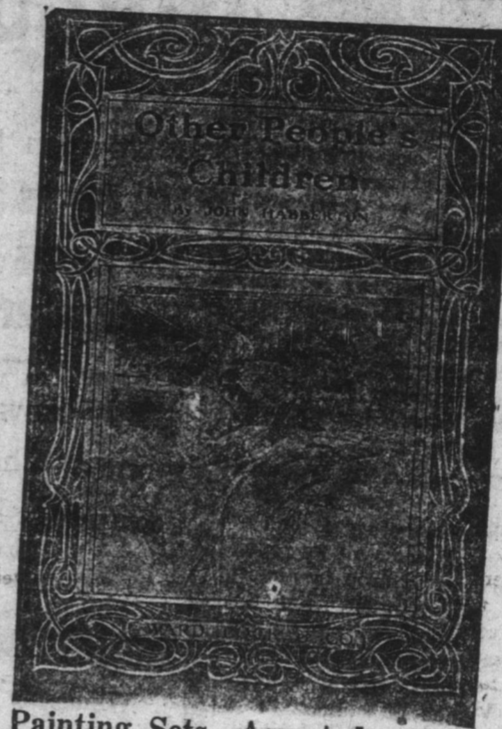 Other People's
Children
By JOHN HABBERTON
WARD,
Painting Sets